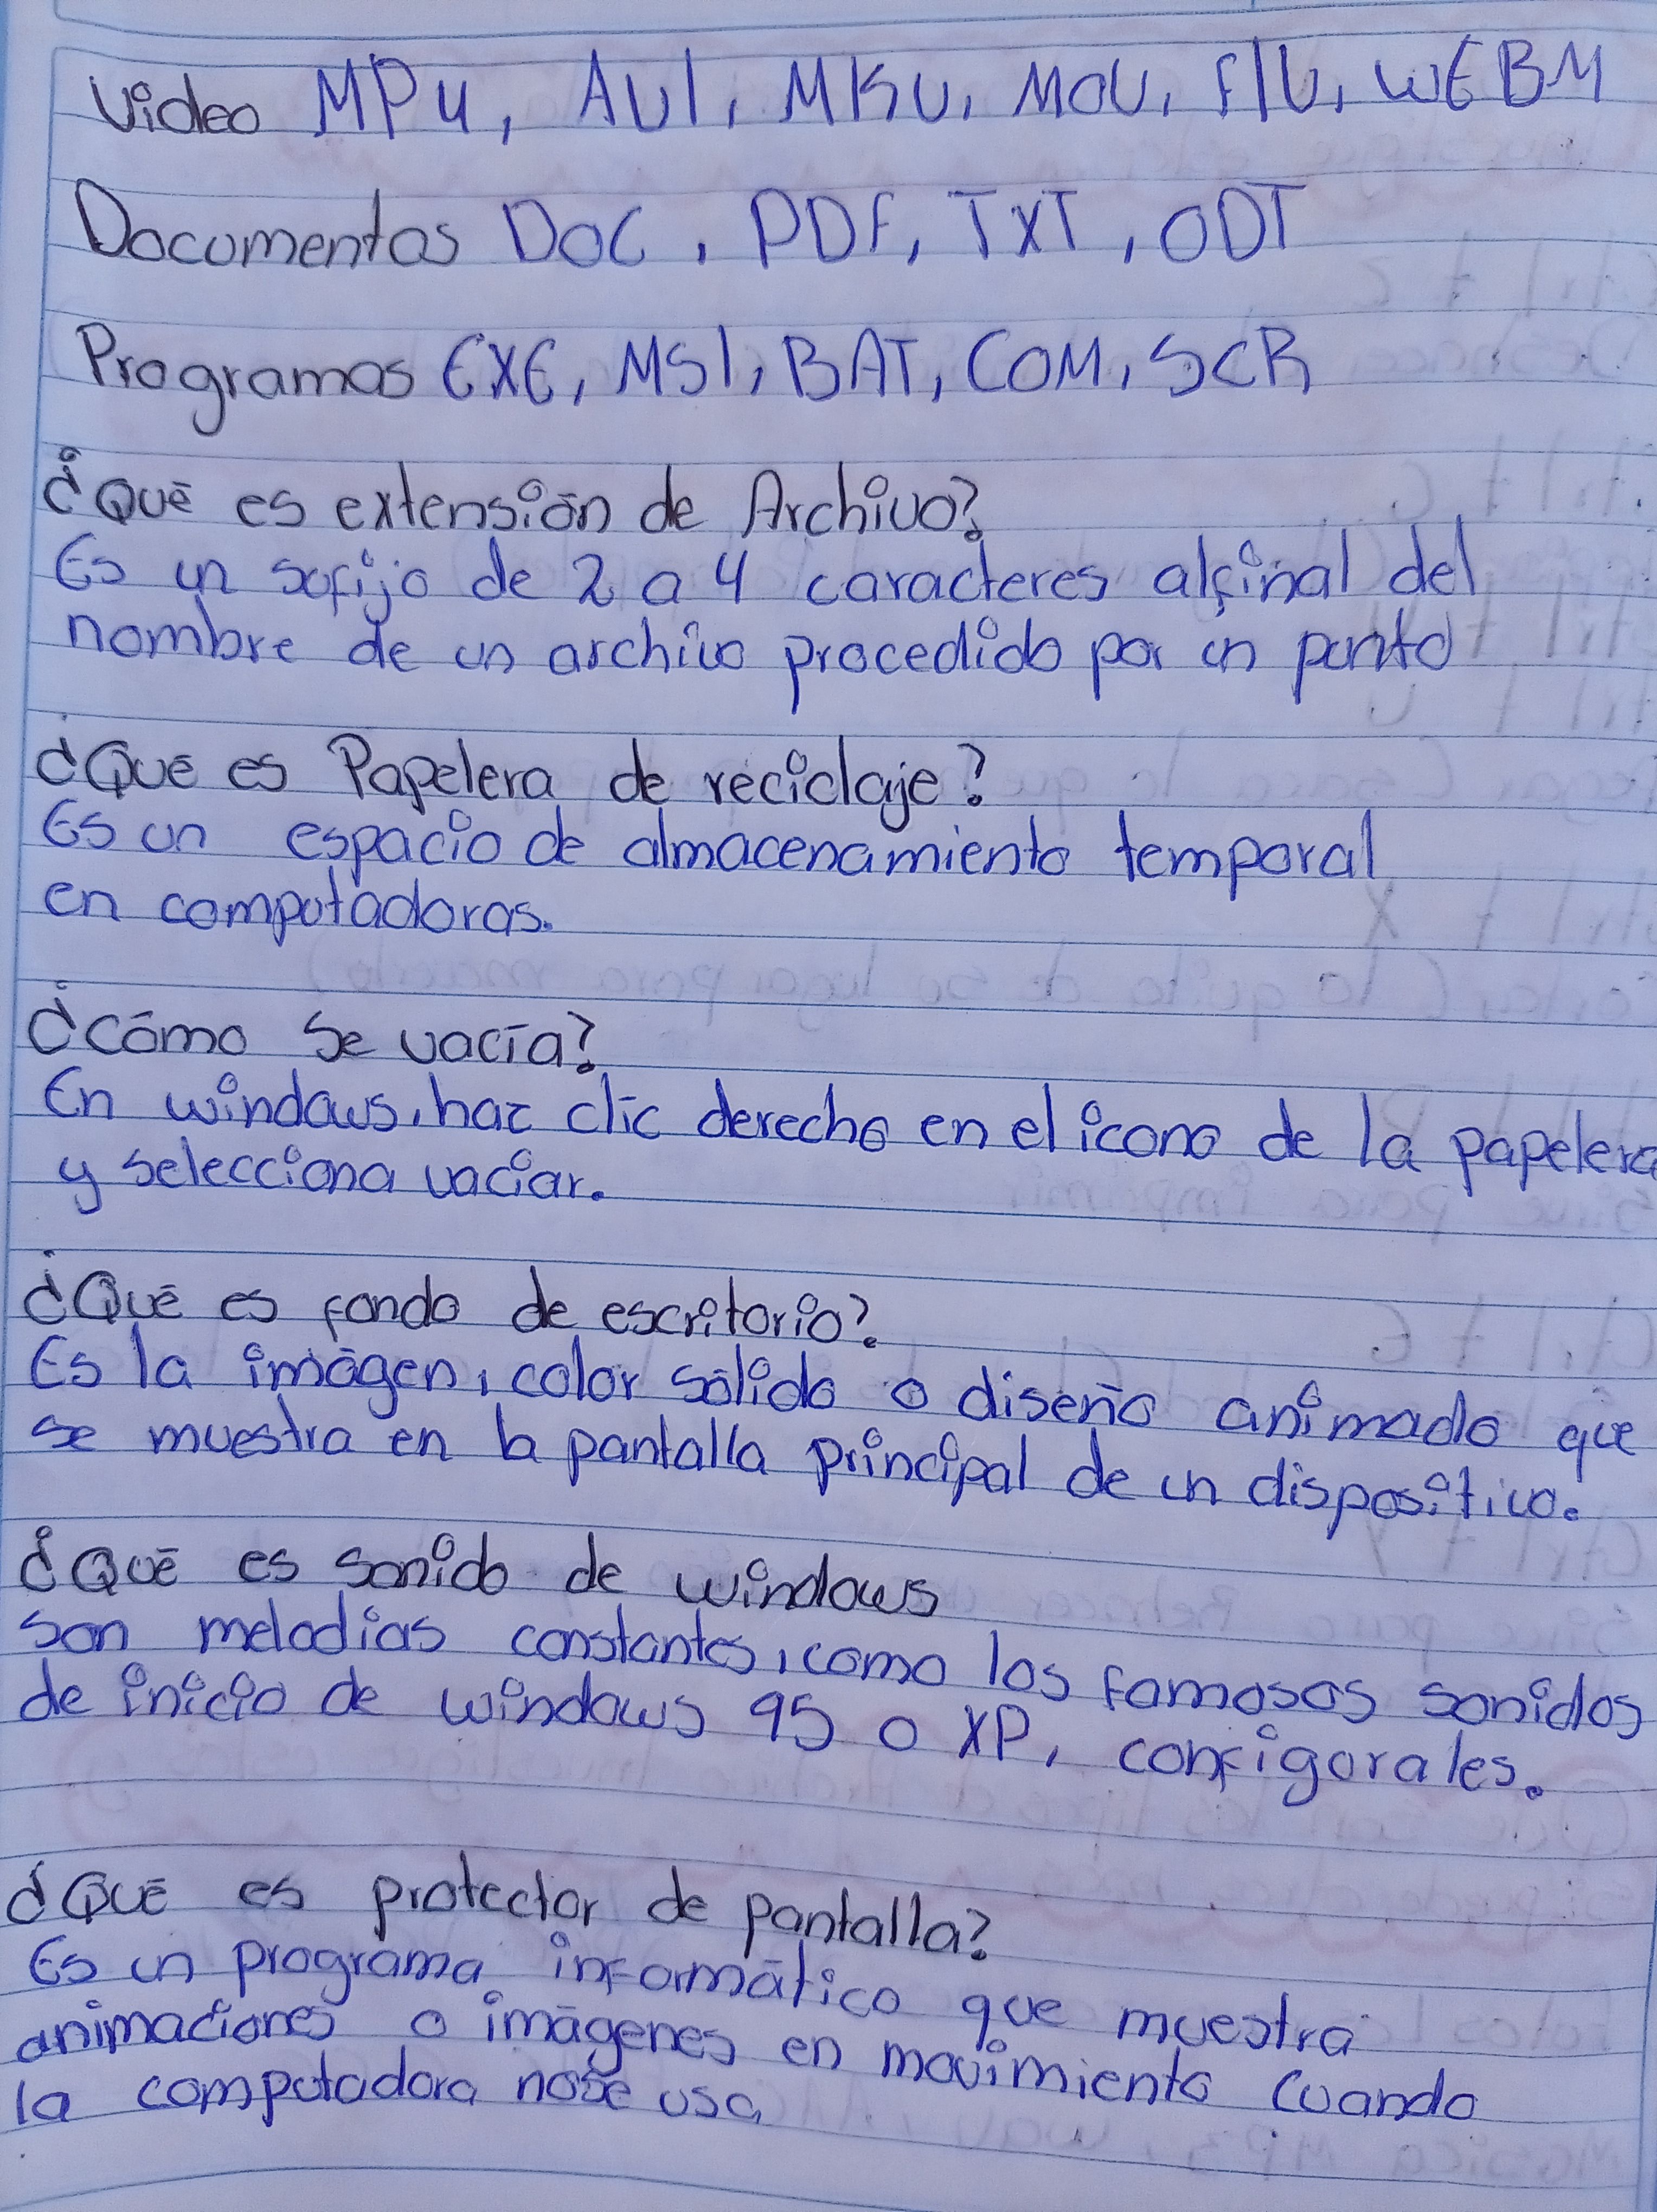 Video MP4, AVI, MKV, MOV, FlV, WEBM
Documentos DOC, PDF, TXT, ODT
Programas EXE, MSI, BAT, COM, SCR
¿Qué es extensión de Archivo?
Es un sofijo de 2 a 4 caracteres alfinal del
nombre de un archivo procedido por un punto
¿Qué es Papelera de reciclaje?
Es un espacio de almacenamiento temporal
en computadoras.
¿Cómo se vacía?
En windows, haz clic derecho en el icono de la papelera
y selecciona vaciar.
¿Qué es fondo de escritorio?
Es la imágen, color sólido o diseño animado que
se muestra en la pantalla principal de un dispositivo.
¿Qué es sonido de windows
son melodías constantes, como los famosos sonidos
de inicio de windows 95 o XP, configorales.
¿Qué es protector de pantalla?
Es un programa informático que muestra
animaciones o imágenes en movimiento cuando
la computadora nose usa